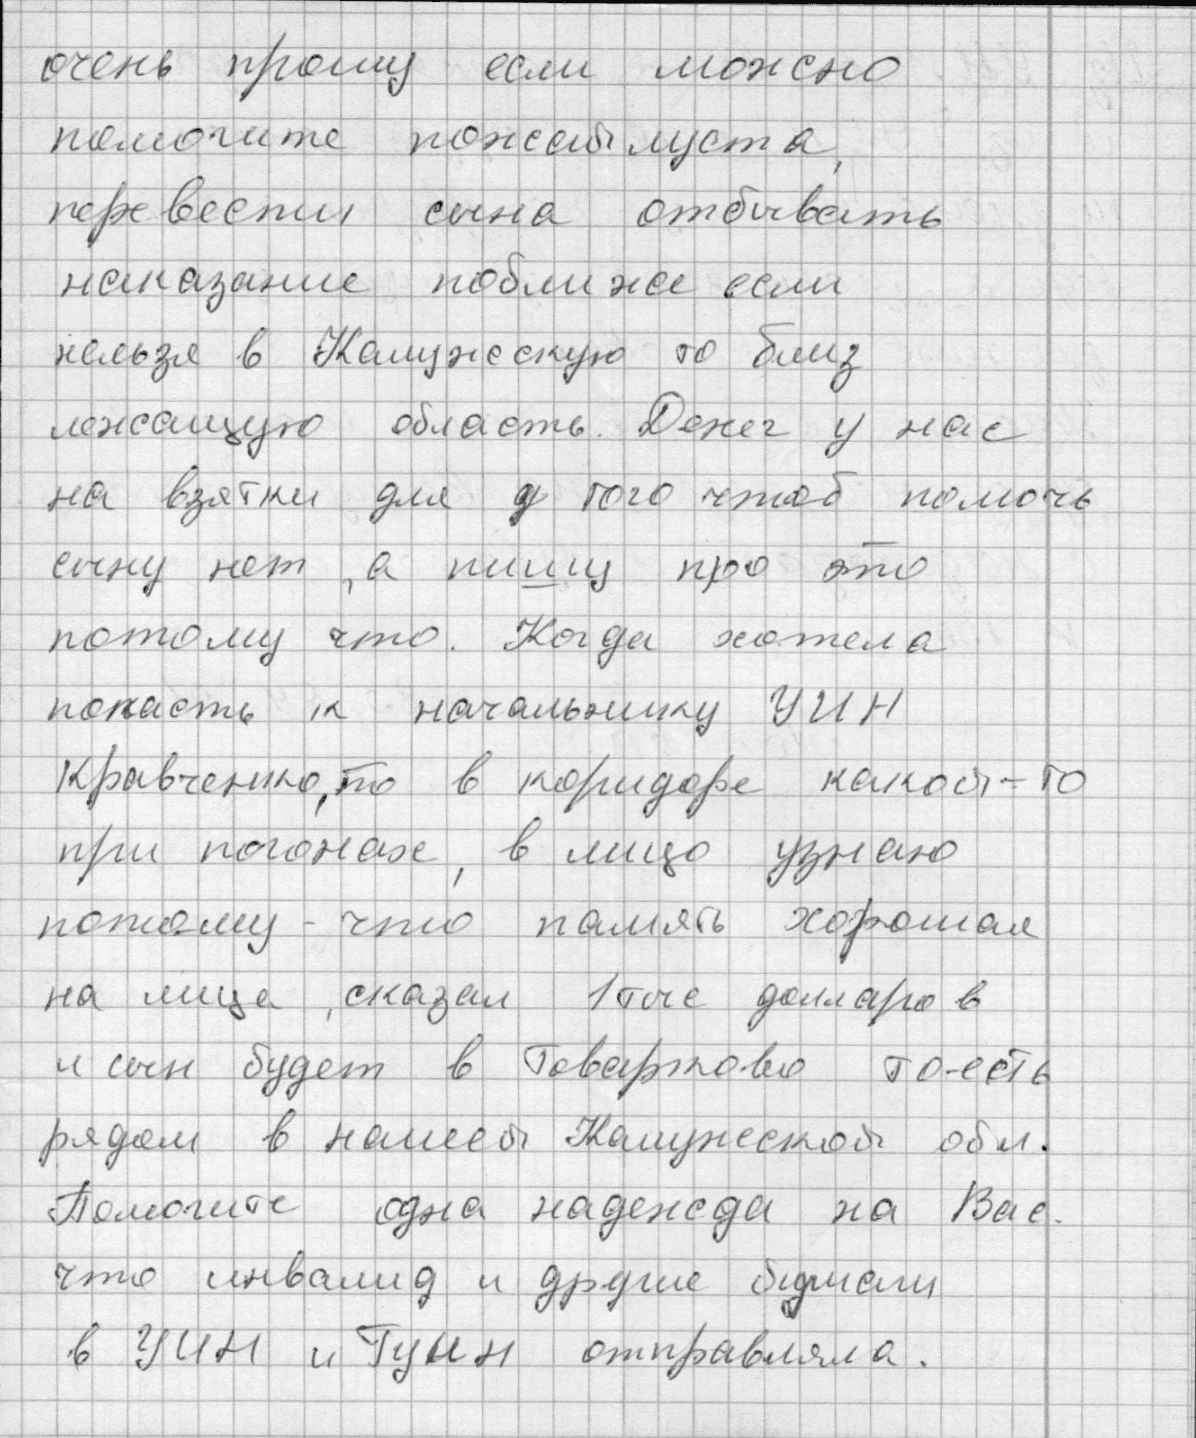 очень прошу если можно
помогите пожайлуста,
перевести сына отбывать
наказание поближе если
нельзя в Калужскую то близ
лежащую область. Денег у нас
на взятки для того чтоб помочь
сыну нет, а пишу про это
потому что. Когда хотела
попасть к начальнику УИН
Кравченко, то в коридоре какой-то
при погонах, в лицо узнаю
потому-что память хорошая
на лица, сказал 1 тыс долларов
и сын будет в Товарково то-есть
рядом в нашей Калужской обл.
Помогите одна надежда на Вас.
что инвалид и другие бумаги
в УИН и ГУИН отправляла.